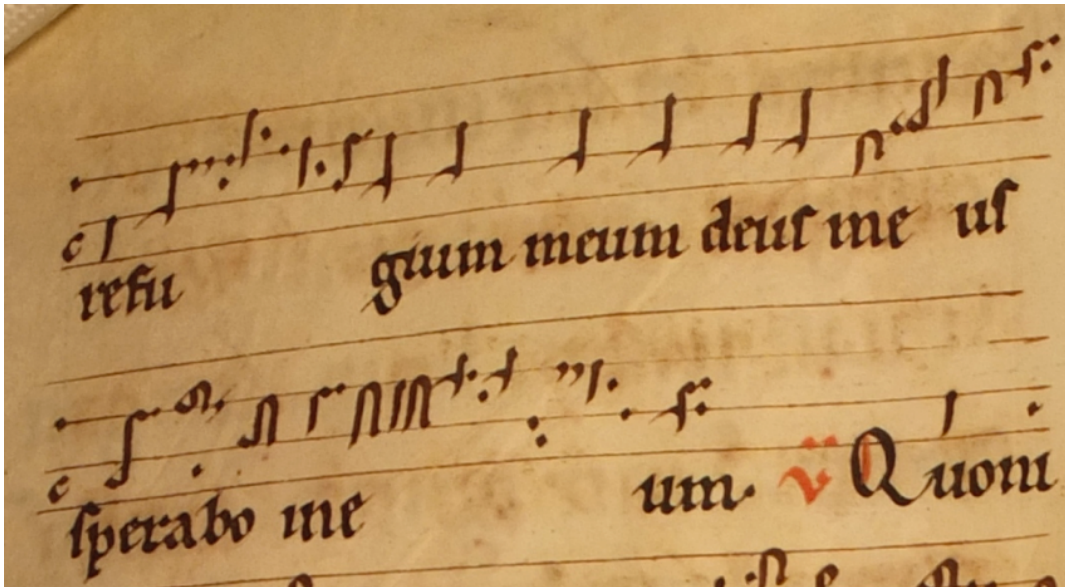 c
refu gium meum deus me us
c
sperabo in e um. v Quoni